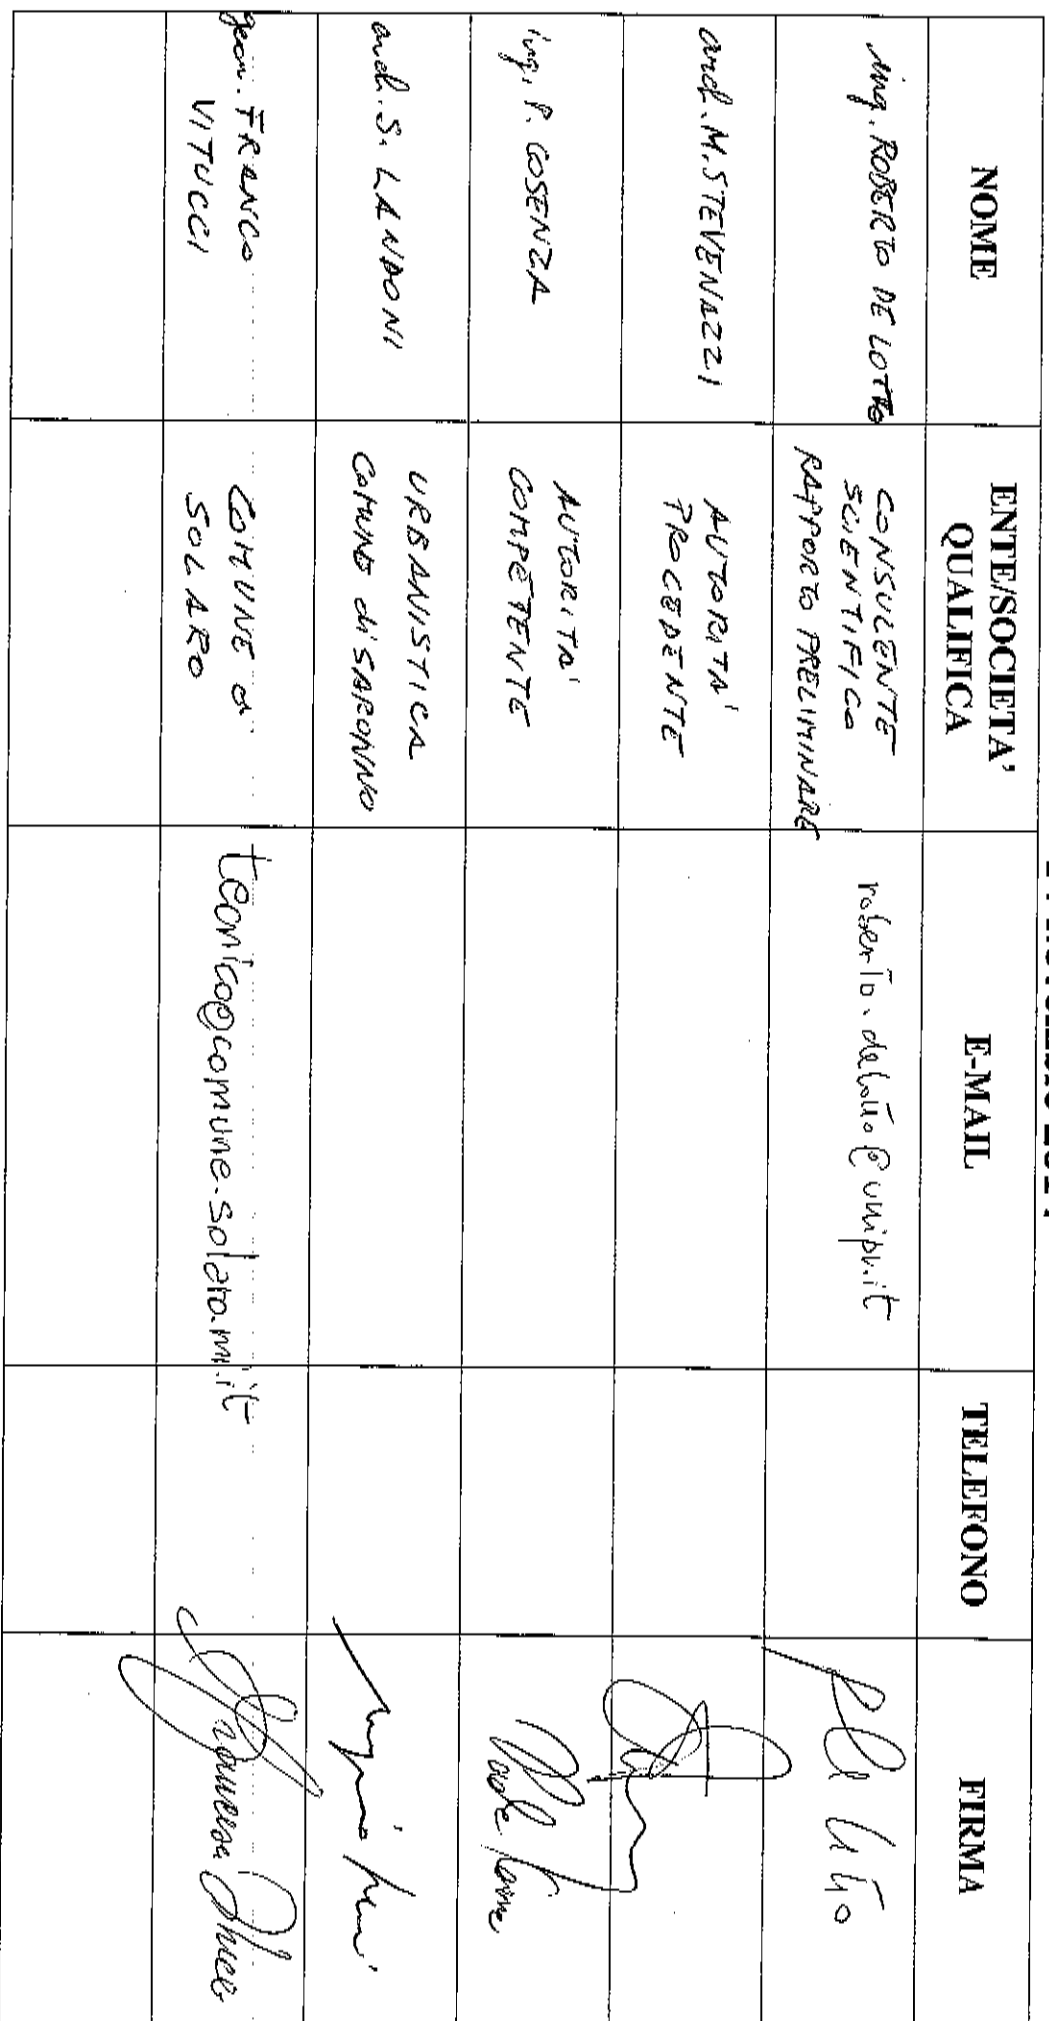 NOME
ENTE/SOCIETA'
QUALIFICA
E-MAIL
TELEFONO
FIRMA
ing. ROBERTO DE LOTTO
CONSULENTE
SCIENTIFICO
RAPPORTO PRELIMINARE
roberto.delotto@unipv.it
arch. M. STEVENAZZI
AUTORITA'
PROCEDENTE
ing. P. COSENZA
AUTORITA'
COMPETENTE
arch. S. LANDONI
URBANISTICA
COMUNE di SARONNO
geom. FRANCO
VITUCCI
COMUNE di
SOLARO
tecnico@comune.solaro.mi.it